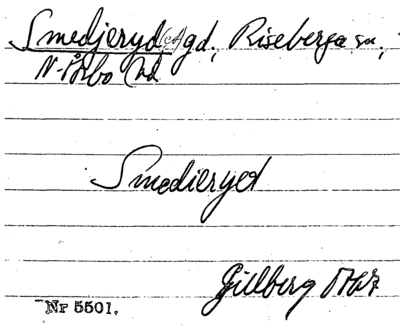 Smedjeryd (A) gd, Riseberga sn,
N-Åsbo hd
Smedieryd
Gillberg
Nr 5501.